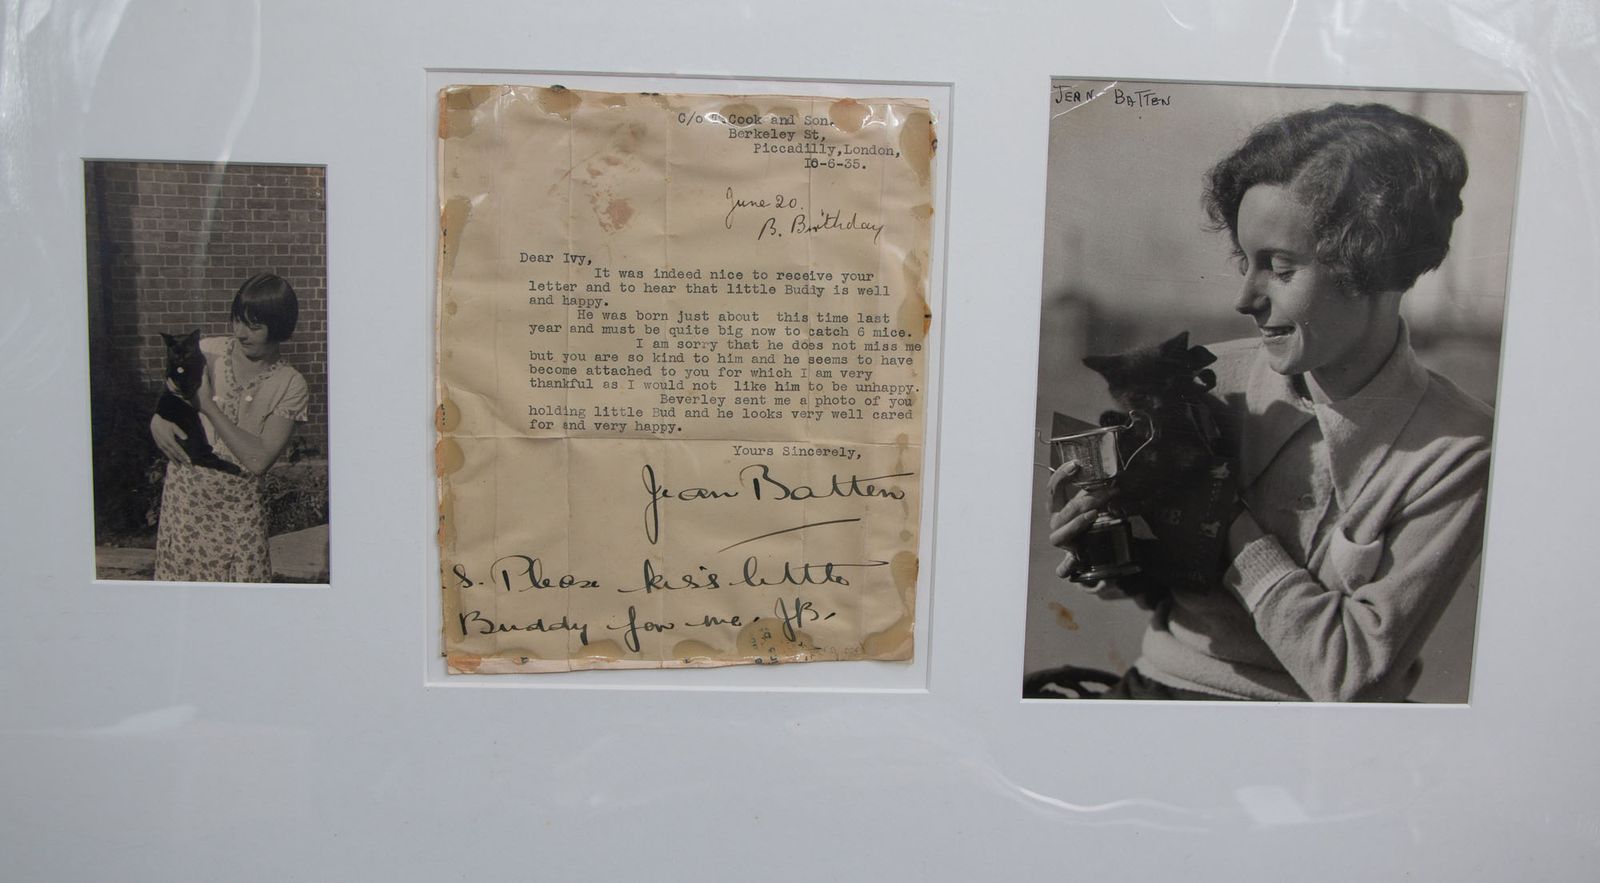 C/o T.Cook and Son.
Berkeley St,
Piccadilly,London,
10-6-35.
June 20.
B. Birthday
Dear Ivy,
It was indeed nice to receive your
letter and to hear that little Buddy is well
and happy.
He was born just about this time last
year and must be quite big now to catch 6 mice.
I am sorry that he does not miss me
but you are so kind to him and he seems to have
become attached to you for which I am very
thankful as I would not like him to be unhappy.
Beverley sent me a photo of you
holding little Bud and he looks very well cared
for and very happy.
Yours Sincerely,
Jean Batten
S. Please kiss little
Buddy for me. JB.
JEAN BATTEN